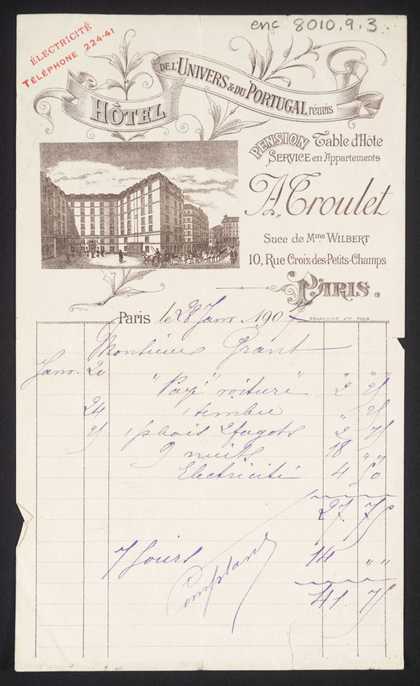 enc 8010.9.3.
ÉLECTRICITÉ
TÉLÉPHONE 224-41
HÔTEL DE L'UNIVERS & DU PORTUGAL réunis
PENSION Table d'Hôte
SERVICE en Appartements
A. Troulet
Succ de Mme WILBERT
10, Rue Croix des Petits-Champs
PARIS.
Paris le 28 Janv. 190
Monsieur Grant
Janv. 20 "Payé" voiture " 2 25
24 1 timbre " 25
25 1 bois 2 fagots 2 75
9 nuits 18 " "
Electricité 4 50
27 75
7 jours 14 " "
Comptant
41 75